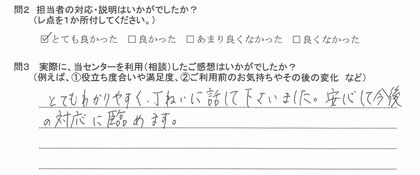 問2 担当者の対応・説明はいかがでしたか?
(レ点を1か所付してください。)
☑とても良かった □良かった □あまり良くなかった □良くなかった
問3 実際に、当センターを利用(相談)したご感想はいかがでしたか?
(例えば、①役立ち度合いや満足度、②ご利用前のお気持ちやその後の変化 など)
とてもわかりやすく、丁ねいに話して下さいました。安心して今後
の対応に臨めます。